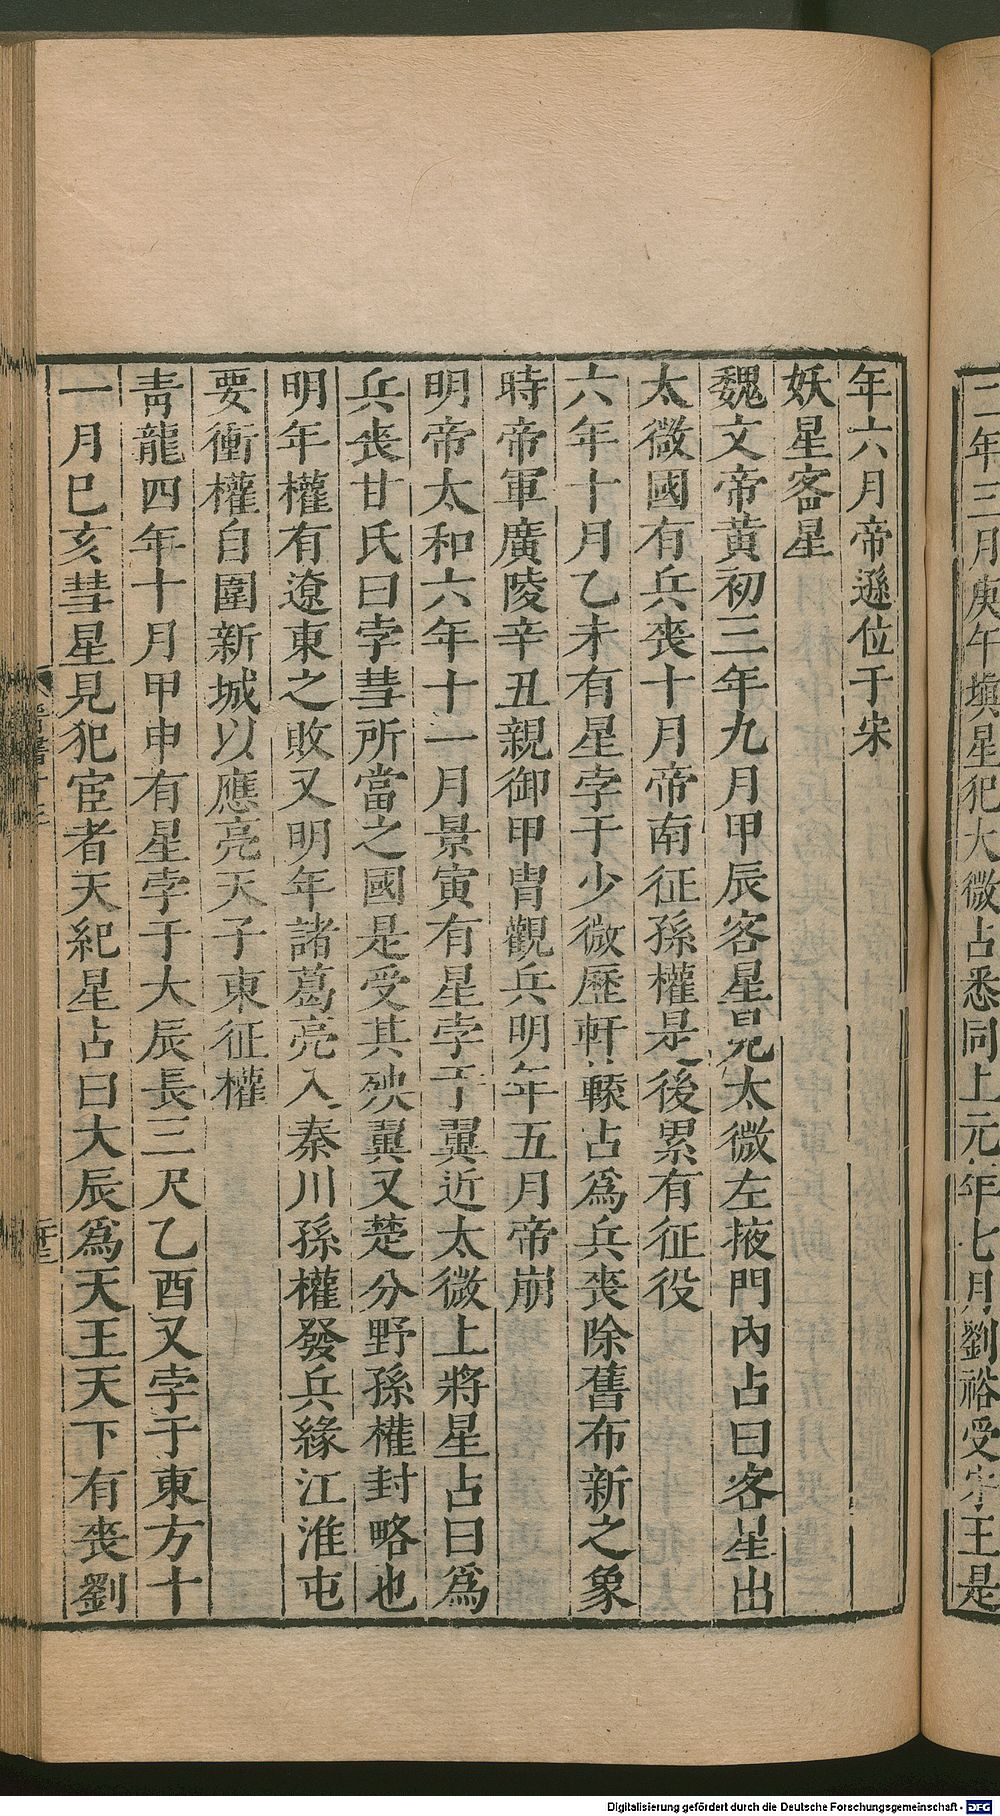 二年三月庚午塡星犯太微占悉同上元年七月劉裕受宋王是
年六月帝遜位于宋
妖星客星
魏文帝黃初三年九月甲辰客星見太微左掖門內占曰客星出
太微國有兵喪十月帝南征孫權是後累有征役
六年十月乙未有星孛于少微歷軒轅占爲兵喪除舊布新之象
時帝軍廣陵辛丑親御甲胄觀兵明年五月帝崩
明帝太和六年十一月景寅有星孛于翼近太微上將星占曰爲
兵喪甘氏曰孛彗所當之國是受其殃翼又楚分野孫權封略也
明年權有遼東之敗又明年諸葛亮入秦川孫權發兵緣江淮屯
要衝權自圍新城以應亮天子東征權
靑龍四年十月甲申有星孛于大辰長三尺乙酉又孛于東方十
一月巳亥彗星見犯宦者天紀星占曰大辰爲天王天下有喪劉
Digitalisierung gefördert durch die Deutsche Forschungsgemeinschaft - DFG